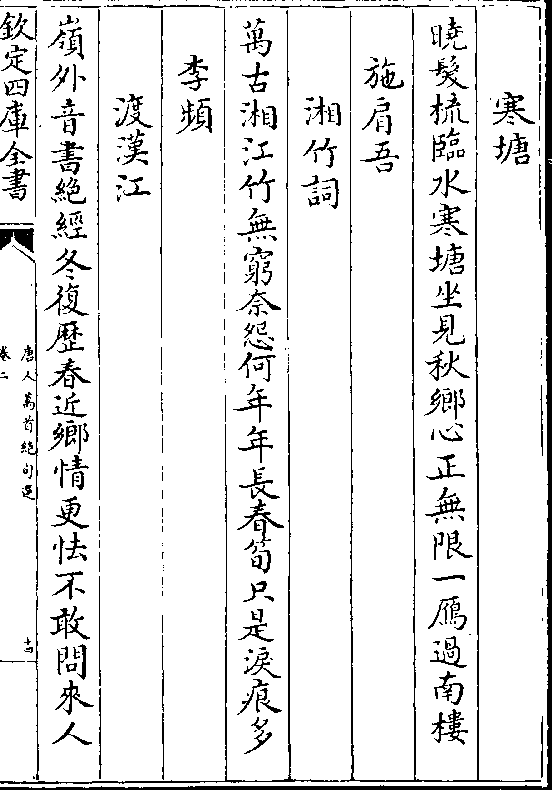 寒塘
曉髮梳臨水寒塘坐見秋鄉心正無限一鴈過南樓
施肩吾
湘竹詞
萬古湘江竹無窮奈怨何年年長春筍只是淚痕多
李頻
渡漢江
嶺外音書絕經冬復歷春近鄉情更怯不敢問來人
欽定四庫全書
唐人萬首絕句選
卷二
十四